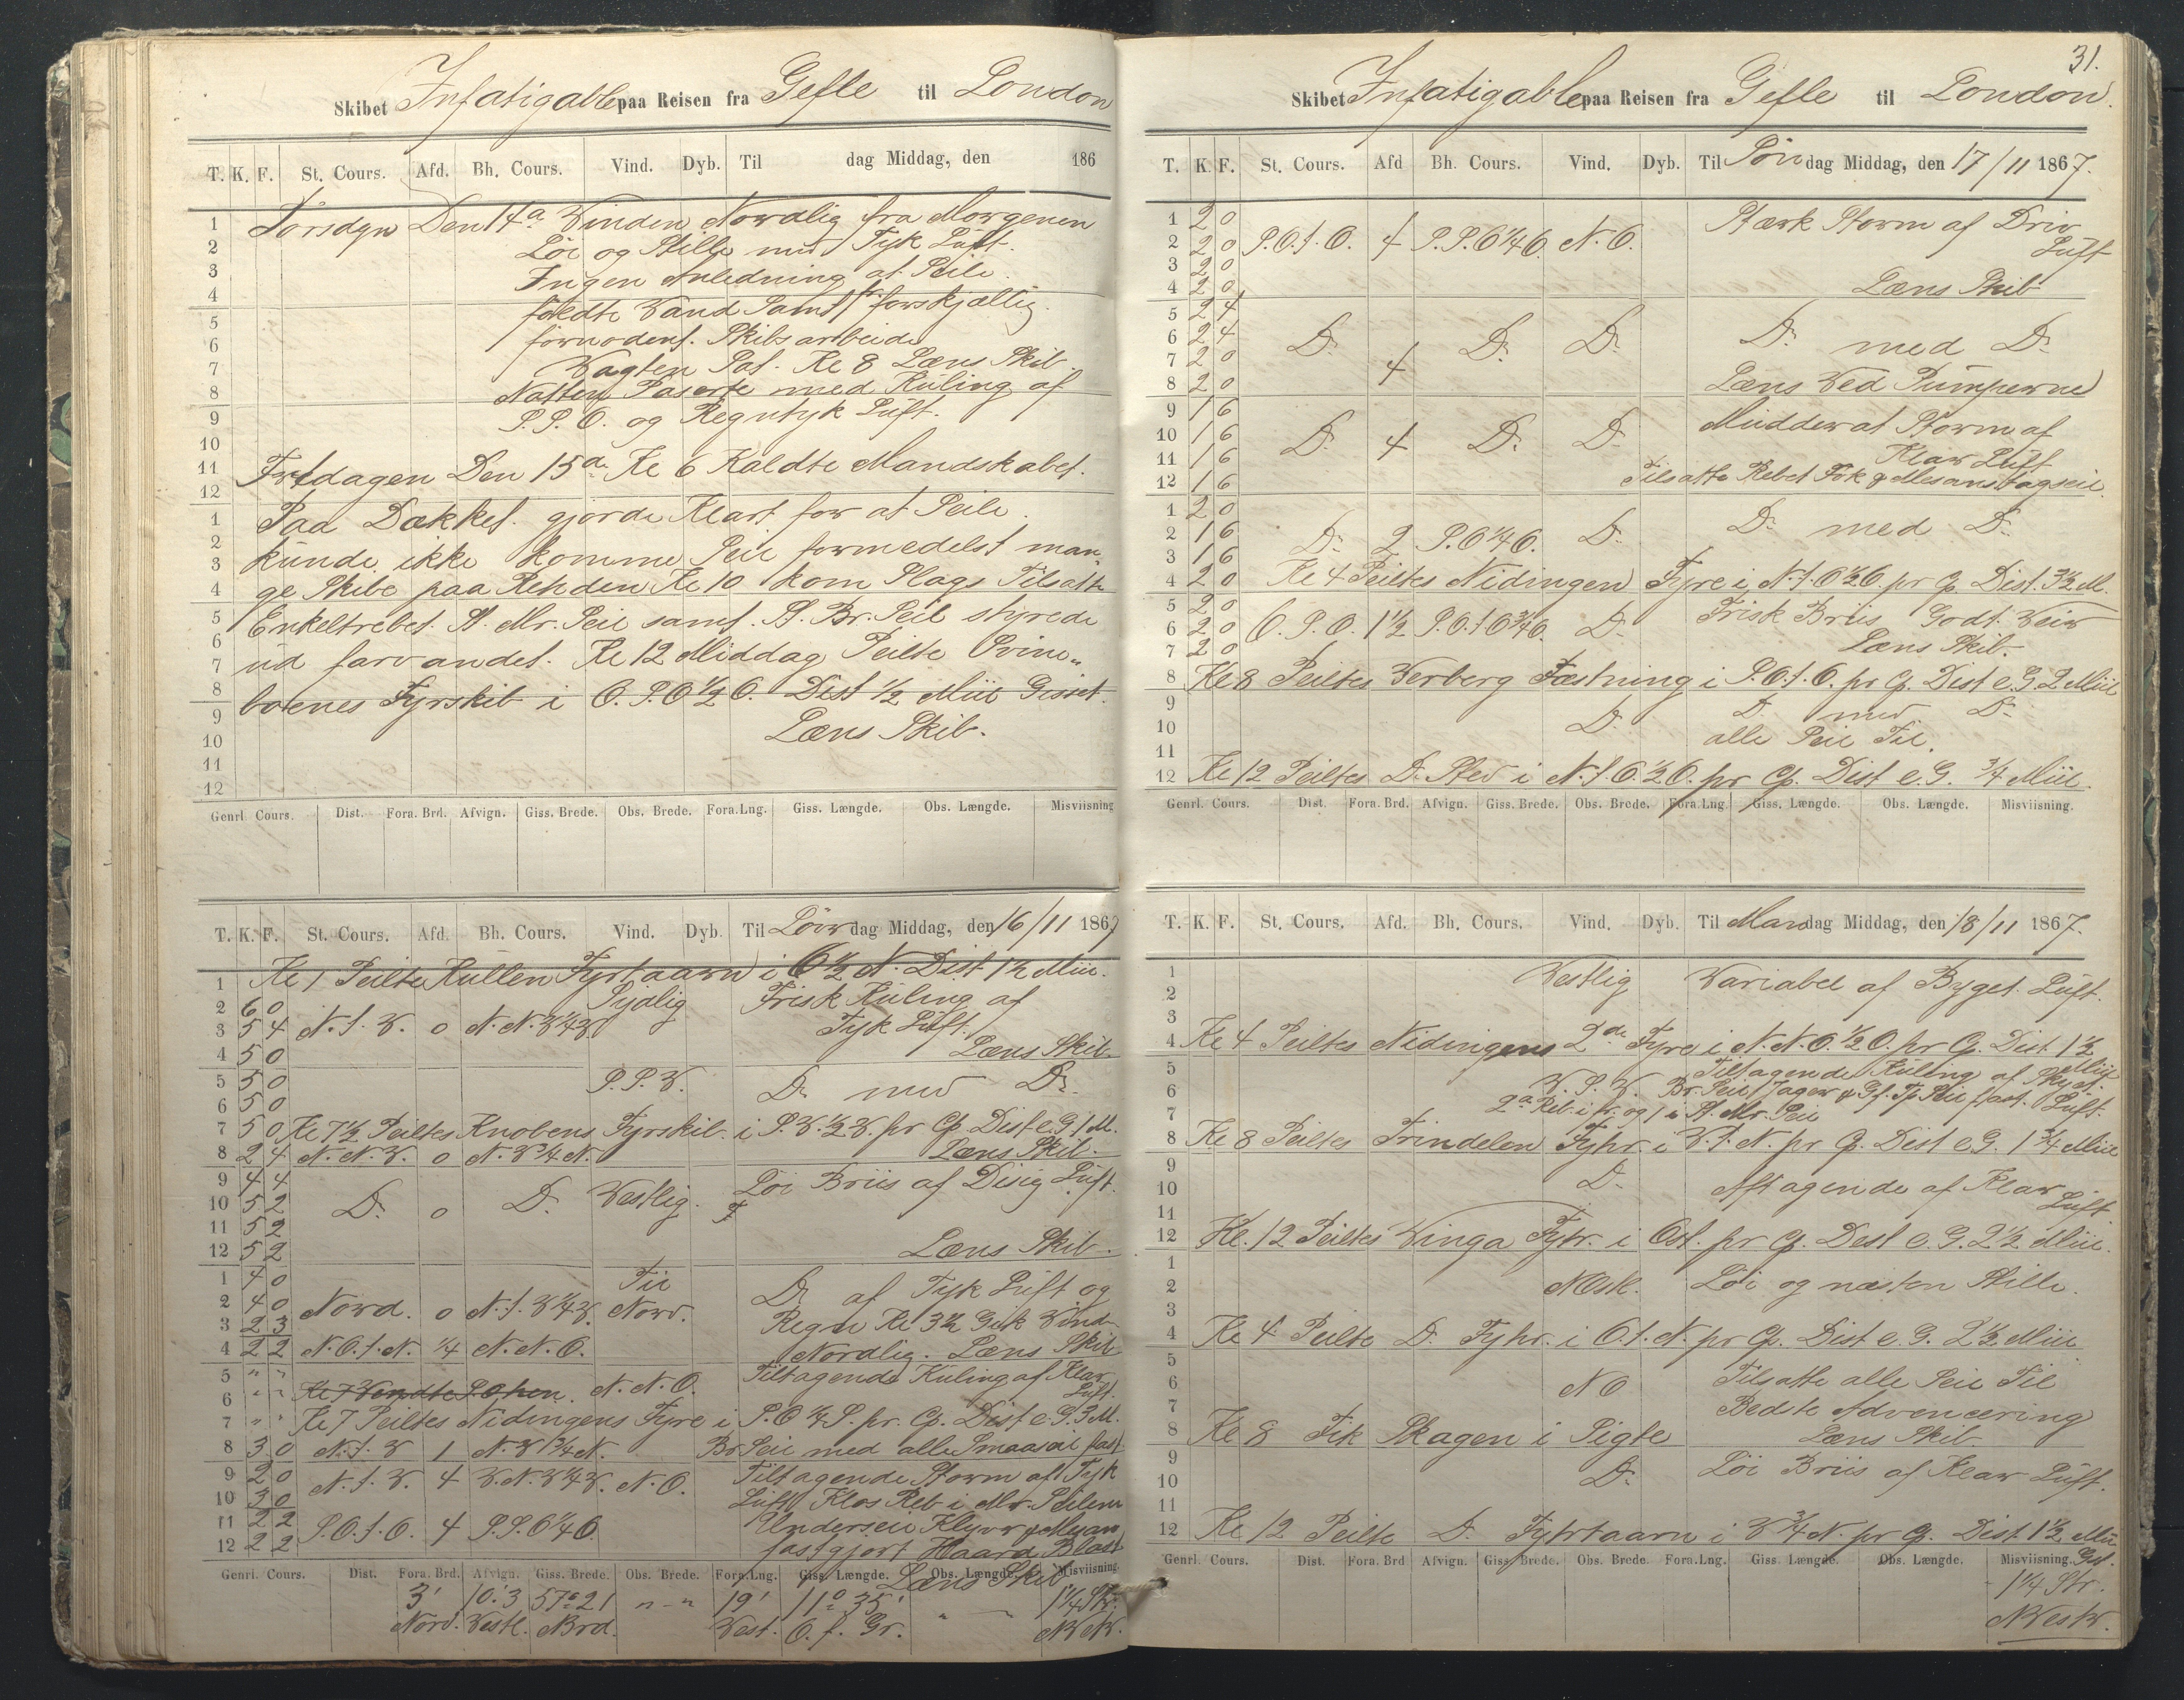 Skibet Infatigable paa Reisen fra Gefle til London
T. K. F. St. Cours. Afd. Bh. Cours. Vind. Dyb. Til dag Middag, den 186
1 Torsdagn Den 14a Winden Nordlig fra Morgenen
2 Löi og Stille med Tyk Luft.
3 Ingen Anledning at Seile.
4 fyldte Vand Samt forskjællig
5 förnødent. Skibsarbeide
6 Vagten Sat. Kl 8 Læns Skib.
7 Natten Paserte med Kuling af
8 S.S.O. og Regntyk Luft.
9
10
11 Fredagen Den 15de Kl 6 Kaldte Mandskabet.
12
1 Paa Dækket. gjorde Klart for at Seile.
2 kunde ikke komme Seil formedelst man-
3 ge Skibe paa Rehden Kl 10 kom Slags Tilsatte
4
5 Enkeltrebet St. Mr. Seil samt. St. Br. Seil styrede
6 ud farvandet. Kl 12 Middag Peilte Svine-
7
8 bodenes Fyrskib i O.S.O ½ O. Dist ½ Miil Gisset.
9 Læns Skib.
10
11
12
Genrl. Cours. Dist. Fora. Brd. Afvign. Giss. Brede. Obs. Brede. Fora. Lng. Giss. Længde. Obs. Længde. Misviisning
T. K. F. St. Cours. Afd. Bh. Cours. Vind. Dyb. Til Löverdag Middag, den 16/11 1867
1 Kl 1 Peilte Kullen Fyrtaarn i O ½ N. Dist 1½ Miil.
2 6 0 Sydlig Frisk Kuling af
3 5 4 N. t. V. 0 N. N. V ¼ V. Tyk Luft.
4 5 0 Læns Skib.
5 5 0 S.S.V. Do med Do.
6 5 0
7 5 0 Kl 7½ Peiltes Knobens Fyrskib. i S.V. ½ V. pr Cp. Dist e. G. 1 M.
8 2 4 N. N. V. 0 N. V ¼ N. Læns Skib.
9 4 4 Löi Briis af Disig Luft.
10 5 2 Do. 0 Do. Vestlig.
11 5 2
12 5 2 Læns Skib.
1 4 0 Til Do af Tyk Luft og
2 4 0 Nord. 0 N. t. V ¼ V. Nord. Regn Kl 3½ Gik Vind
3 2 3
4 2 2 N. O. t. N. ¼ N. N. O. Nordlig. Læns Skib
5 " " Tiltagende Kuling af Klar
6 " " Kl 7 Vendte N. N. O. Luft.
7 " " Kl 7 Peiltes Nidingens Fyre i S. O ¼ S. pr. Cp. Dist e. G. 3 M.
8 3 0 N. t. V 1 N. V ¾ N. Br Seil med alle Smaaseil fast
9 2 0 Tiltagende Storm af Tyk
10 3 0 N. t. V. 4 V. N. V ¼ V. N. O. Luft. Klos Reb i Mr. Seilene
11 2 2 Underseil Klyver & Mesan
12 2 2 S. O. t. O. 4 S. S. O ¼ O. fastgjort Haard Blæst
Læns Skib
Genrl. Cours. Dist. Fora. Brd. Afvign. Giss. Brede. Obs. Brede. Fora. Lng. Giss. Længde. Obs. Længde. Misviisning.
3' 10.'3 57°21 " - " 19' 11° 35' " 1¼ Str.
Nord. Vestl. N Brd. Vest. O. f. Gr. N V.
31.
Skibet Infatigable paa Reisen fra Gefle til London.
T. K. F. St. Cours. Afd Bh. Cours. Vind. Dyb. Til Söndag Middag, den 17/11 1867.
1 2 0 Stærk Storm af Driv
2 2 0 S. O. t. O. 4 S. S. O ¼ O. N. O. Luft
3 2 0
4 2 0 Læns Skib
5 2 4
6 2 4 Do. Do. Do. Do. med Do.
7 2 0 4
8 2 0 Læns Ved Pumperne
9 1 6 Midderat Storm af
10 1 6 Do. 4 Do. Do.
11 1 6 Klar Luft
12 1 6 Tilsatte Rebet Fok & Mesanstagseil.
1 2 0
2 1 6 Do. 2 S. O ¼ O. Do. Do. med Do.
3 1 6
4 2 0 Kl 4 Peiltes Nidingen Fyre i N. t. O ½ O pr Cp. Dist. 3½ M.
5 2 0 Frisk Briis Godt Veir
6 2 0 O. S. O. 1½ S. O. t. O ¾ O. Do.
7 2 0 Læns Skib.
8 Kl 8 Peiltes Verberg Fæstning i S. O. t. O. pr Cp. Dist e. G. 2 Miil
9 Do. med Do.
10 Do. alle Seil Til.
11
12 Kl 12 Peiltes Do Sted i N. t. O. ½ O. pr Cp. Dist e. G. ¾ Miil.
Genrl. Cours. Dist. Fora. Brd. Afvign. Giss. Brede. Obs. Brede. Fora. Lng. Giss. Længde. Obs. Længde. Misviisning.
T. K. F. St. Cours. Afd. Bh. Cours. Vind. Dyb. Til Mandag Middag, den 18/11 1867.
1 Vestlig Variabel af Byget Luft.
2
3
4 Kl 4 Peiltes Nidingens 2de Fyre i N. N. O. ½ O. pr Cp. Dist 1½ Miil
5 Tiltagende Kuling af Skyet
6 V. S. V. Br. Seil Jager & Gf. Tp Seil fast. Luft.
7 2a Reb i fr. og 1 i St. Mr. Seil
8 Kl 8 Peiltes Trindelen Fyhr. i V. t. N. pr Cp. Dist e. G. 1¾ Miil
9 Do.
10 Aftagende af Klar
11 Luft.
12 Kl. 12 Peiltes Vinga Fyhr. i Ost. pr Cp. Dest e. G. 2½ Miil.
1
2 NOsk. Löi og næsten Stille.
3
4 Kl 4 Peilte Do. Fyhr. i O. t. N. pr Cp. Dist e. G. 2½ Miil
5
6 NO Tilsatte alle Seil Til
7 Bedste Advencering
8 Kl 8 Fik Skagen i Sigte Læns Skib.
9
10 Do. Löi Briis af Klar Luft.
11
12 Kl 12 Peilte Do. Fyhrtaarn i V ¾ N. pr Cp. Dist. 1½ Miil Gs.
Genrl. Cours. Dist. Fora. Brd Afvign. Giss. Brede. Obs. Brede. Fora. Lng. Giss. Længde. Obs. Længde. Misviisning.
1¼ Str.
NVestr.